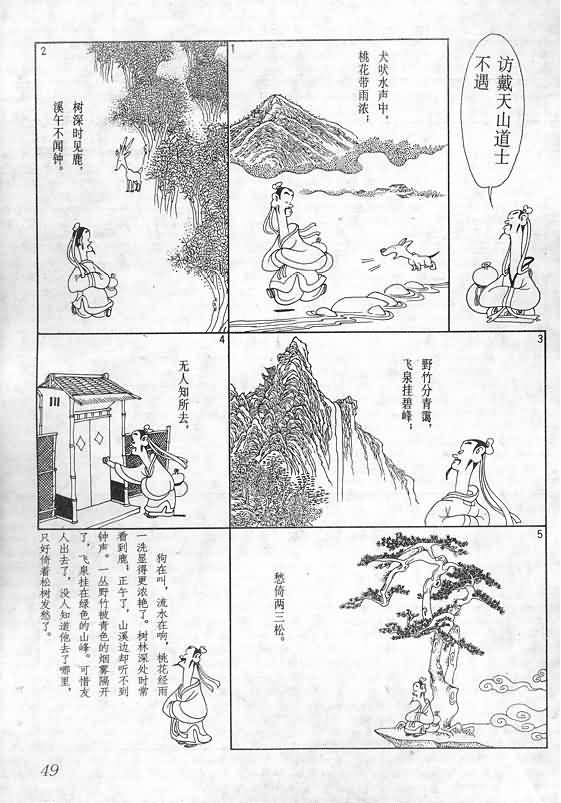 访戴天山道士
不遇
1
犬吠水声中，
桃花带雨浓；
2
树深时见鹿，
溪午不闻钟。
3
野竹分青霭，
飞泉挂碧峰；
4
无人知所去，
5
愁倚两三松。
狗在叫，流水在响，桃花经雨
一洗显得更浓艳了。树林深处时常
看到鹿；正午了，山溪边却听不到
钟声。一丛野竹被青色的烟雾隔开
了，飞泉挂在绿色的山峰。可惜友
人出去了，没人知道他去了哪里，
只好倚着松树发愁了。
49